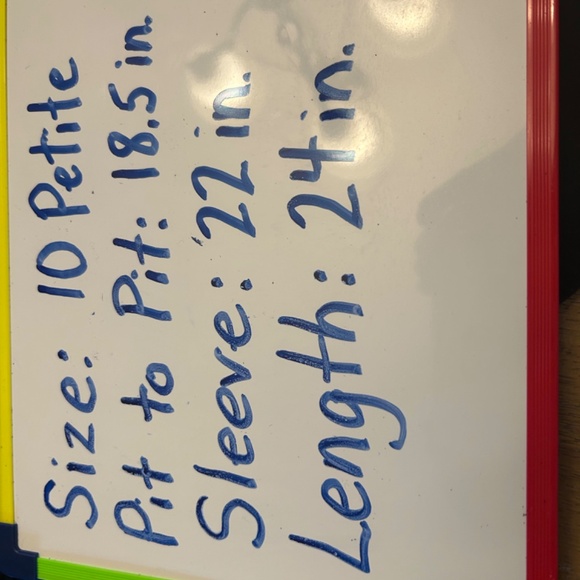 Size: 10 Petite
Pit to Pit: 18.5 in.
Sleeve: 22 in.
Length: 24 in.